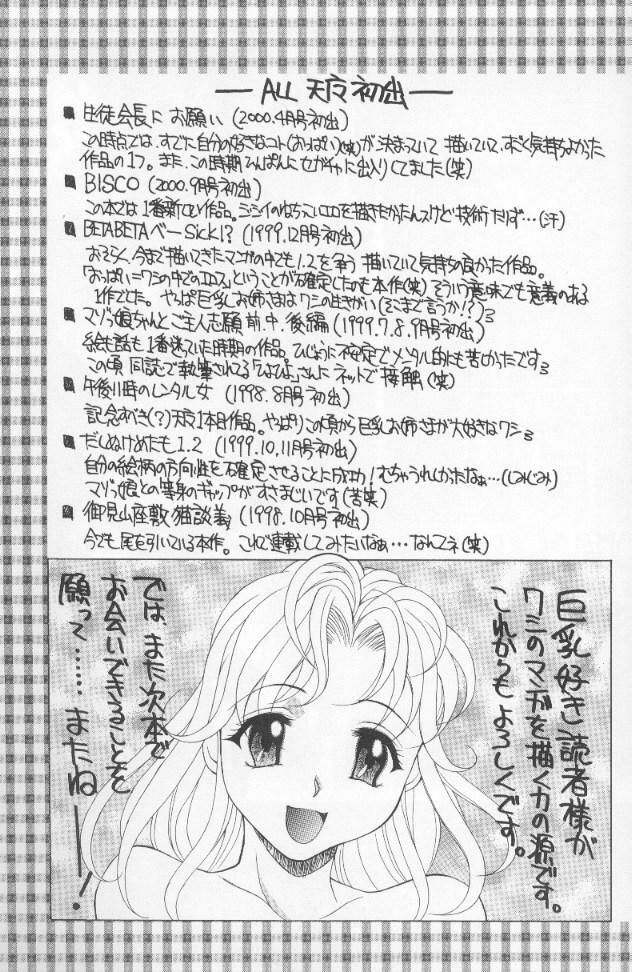 — ALL 天魔 初出 —
■ 生徒会長に お願い (2000.4月号初出)
この時点では、すでに自分の好きなコト(おっぱい)(笑)が 決まっていて 描いていて、すごく気持ちよかった
作品の1つ。また、この時期 ひんぱんに セガャャに出入りしてました(笑)
■ BISCO (2000.9月号初出)
この本では 1番新しい作品。ジジイのねちっこいエロを描きたかったんスけど 技術たりず…(汗)
■ BETABETAベーSick!? (1999.12月号初出)
おそらく、今まで描いてきたマンガの中でも 1.2を争う 描いていて気持ちの良かった作品。
「おっぱい=ワシの中でのエロス」ということが確定したのも本作(笑) そういう意味でも 意義のある
1作でした。やっぱ巨乳お姉さまは ワシの生きがい(そこまで言うか!?)
■ マゾっ娘ちゃんとご主人志願 前.中.後編 (1999.7.8.9月号初出)
絵も話も 1番迷っていた時期の作品。ひじょうに 不安定でメンタル的にも苦しかったです
この頃 同誌で執筆される「ぴよぴよ」さんに ネットで 接触(笑)
■ 午後11時のレンタル女 (1998.8月号初出)
記念すべき(?)天魔1本目作品。やっぱりこの頃から 巨乳お姉さまが大好きなワシ
■ だしぬけめたも 1.2 (1999.10.11月号初出)
自分の絵柄の方向性を確定させることに成功! むちゃうれしかったなぁ…(しみじみ)
マゾっ娘との等身のギャップがすさまじいです(苦笑)
■ 御見山座敷猫談義 (1998.10月号初出)
今でも 尾を引いている本作。これで連載してみたいなぁ…なんてネ(笑)
巨乳好き読者様が
ワシのマンガを描く力の源です。
これからも よろしくです。
では、また次本で
お会いできることを
願って……またねーー!